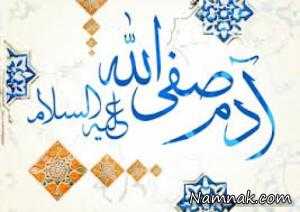 آدم صفی الله
علیه السلام
Namnak.com